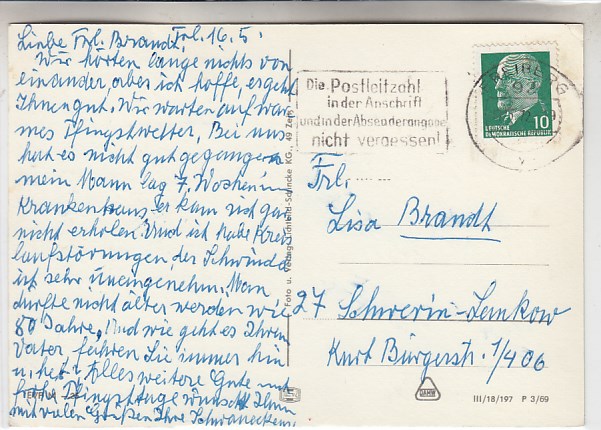 Frl. 16.5.
Liebe Frl. Brandt,
Wir hörten lange nichts von
einander, aber ich hoffe, es geht
Ihnen gut. Wir warten auf war
mes Pfingstwetter, Bei uns
hat es nicht gut gegangen
mein Mann lag 7. Wochen im
Krankenhaus er kam sich gar
nicht erholen. Und ich habe Kreis
laufstörungen, der Schwindel
ist sehr Uneingenehm. Man
dürfte nicht älter werden wie
80 Jahre. Und wie geht es Ihrem
Vater, fahren Sie immer hin
u. her? Alles weitere Gute und
frohe Pfingsttage wünscht Ihnen
mit vielen Grüßen Ihre
Foto u. Verlag: Lichtbild-Schincke KG., 49 Zeitz
Die Postleitzahl
in der Anschrift
und in der Absenderangabe
nicht vergessen!
FREIBERG
92
10
DEUTSCHE
DEMOKRATISCHE REPUBLIK
Frl.
Lisa Brandt
27 Schwerin-Lankow
Kurt Bürgerstr. 1/406
III/18/197 P 3/69